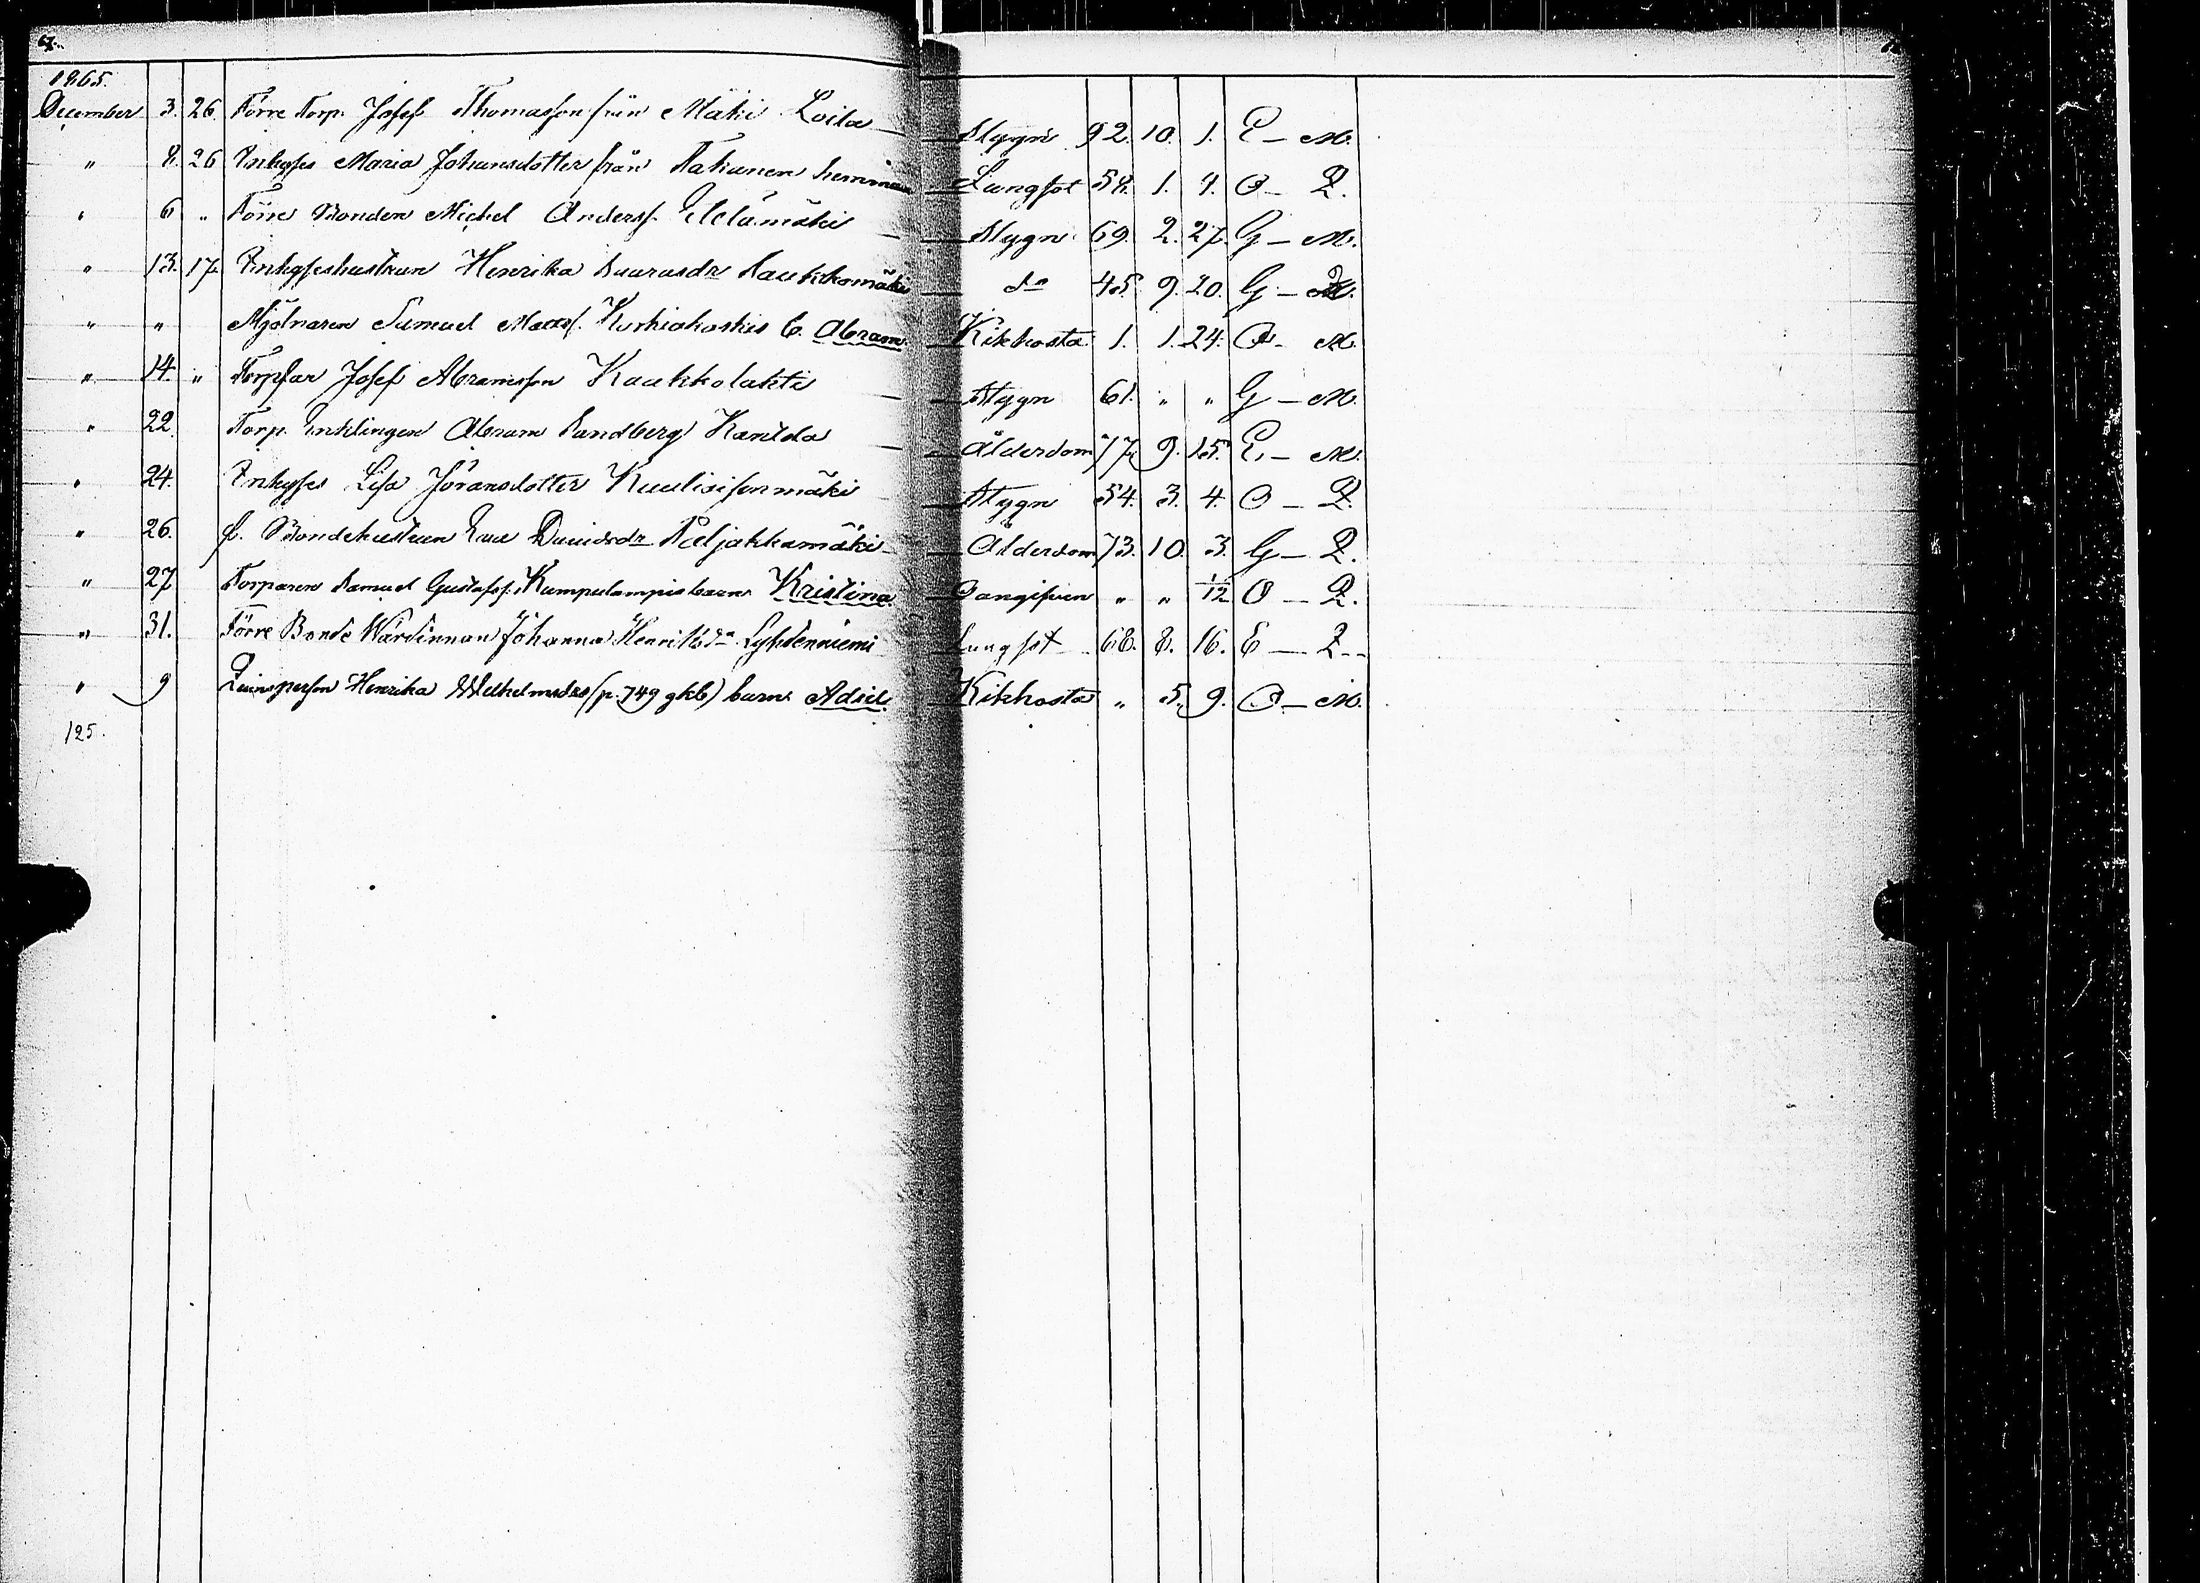 67.
1865.
December 3. 26. Förre Torp. Josef Thomasson från Mäki Loila — Stygn 92. 10. 1. E — M.
" 8. 26 Inhyses Maria Johansdotter från Takanen hemman — Lungsot 58. 1. 4. O — Q.
" 6 " Förre Bonden Michel Anderss. Ylelämäki — Stygn 69. 2. 27. G — M.
" 13. 17. Inhyseshustrun Henrika Laurusdr Laukkomäki — do 45. 9. 20. G — Q.
" " Mjölnaren Samuel Matts. Kurkiokoskis b. Abram — Kikhosta 1. 1. 24. O — M.
" 14. " Torpar Josef Abramsson Kaukkolahti — Stygn 61. " " G — M.
" 22. Torp. Enklingen Abram Sandberg Kantda — Ålderdom 77. 9. 15. E. — M.
" 24. Inhyses Lisa Jöransdotter Kuulisisenmäki — Stygn 54. 3. 4. O — Q.
" 26. f. Bondehustrun Eva Davidsdr Paljakkamäki — Ålderdom 73. 10. 3. G — Q.
" 27 Torparen Samuel Gustafss. Kumpulampis barn Kristina — Oangifven " " 1/12 O — Q.
" 31. Förre Bonde Wärdinnan Johanna Henriksda Lyhdenniemi Lungsot 68. 8. 16. E — Q.
" 9 Qvinsperson Henrika Wilhelmsdrs (p. 749 gkb) barn Adiel — Kikhosta " 5. 9. O — M.
125.